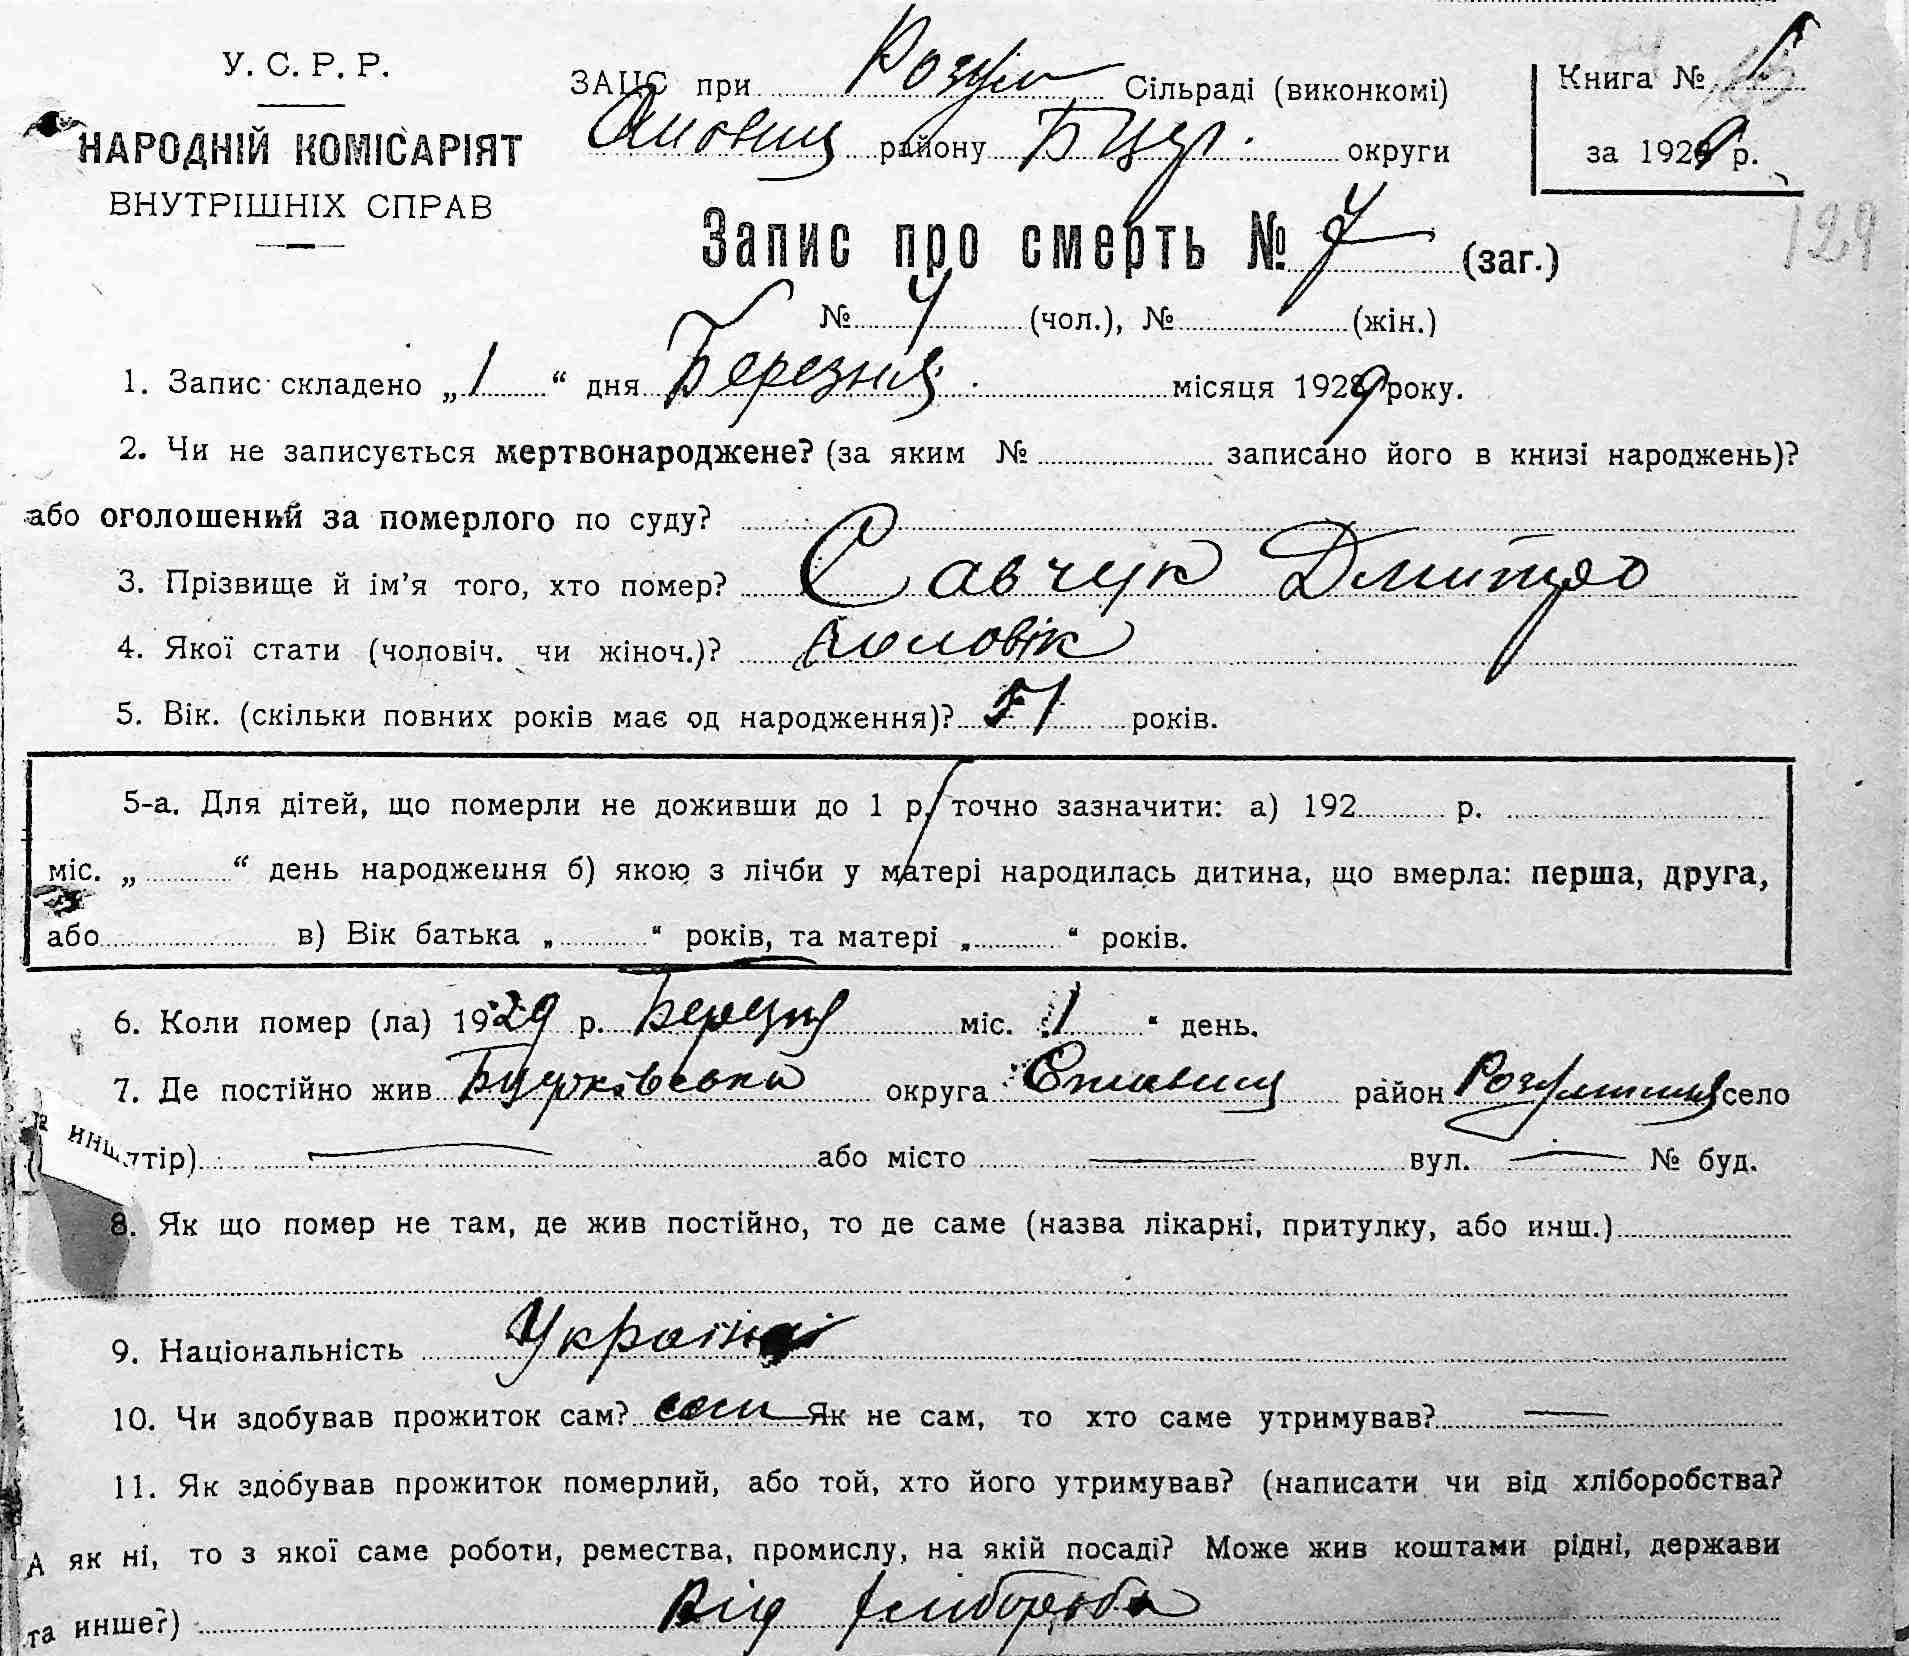 У. С. Р. Р.
НАРОДНІЙ КОМІСАРІЯТ
ВНУТРІШНІХ СПРАВ
ЗАЦС при Розум Сільраді (виконкомі)
району Б Церк. округи
Книга №
за 1929 р.
129
Запис про смерть № 7 (заг.)
№ 4 (чол.), № (жін.)
1. Запис складено „1“ дня Березня місяця 1929 року.
2. Чи не записується мертвонароджене? (за яким № записано його в книзі народжень)?
або оголошений за померлого по суду?
3. Прізвище й ім’я того, хто помер? Савчук Дмитро
4. Якої стати (чоловіч. чи жіноч.)? чоловік
5. Вік. (скільки повних років має од народження)? 51 років.
5-а. Для дітей, що померли не доживши до 1 р. точно зазначити: а) 192 р.
міс. „ “ день народження б) якою з лічби у матері народилась дитина, що вмерла: перша, друга,
або в) Вік батька „ “ років, та матері „ “ років.
6. Коли помер (ла) 1929 р. Березня міс. 1 “ день.
7. Де постійно жив округа район село
инш
тір) або місто вул. № буд.
8. Як що помер не там, де жив постійно, то де саме (назва лікарні, притулку, або инш.)
9. Національність
10. Чи здобував прожиток сам? сам Як не сам, то хто саме утримував? —
11. Як здобував прожиток померлий, або той, хто його утримував? (написати чи від хліборобства?
А як ні, то з якої саме роботи, ремества, промислу, на якій посаді? Може жив коштами рідні, держави
та инше?) Від хлібороба